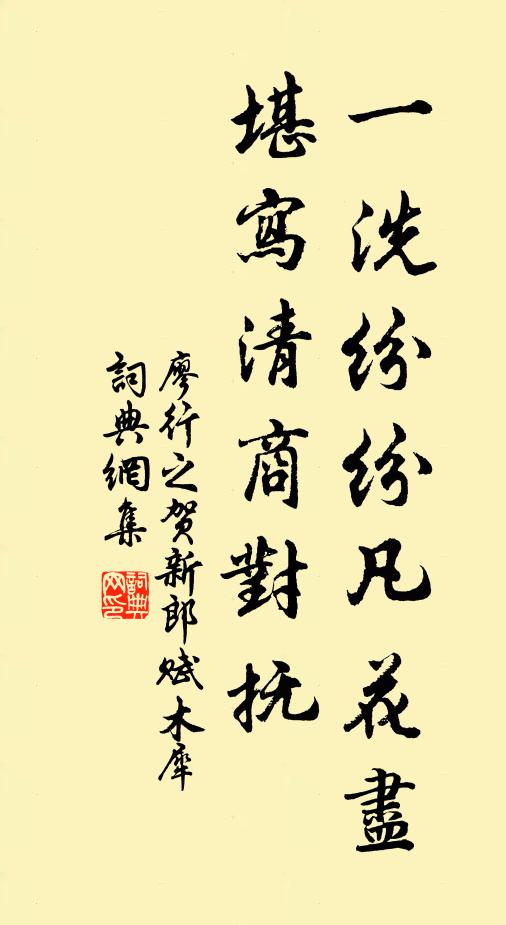 一洗纷纷凡花盡
堪寫清商對抚
廖行之贺新郎赋木犀
詞典網集
詞典网印